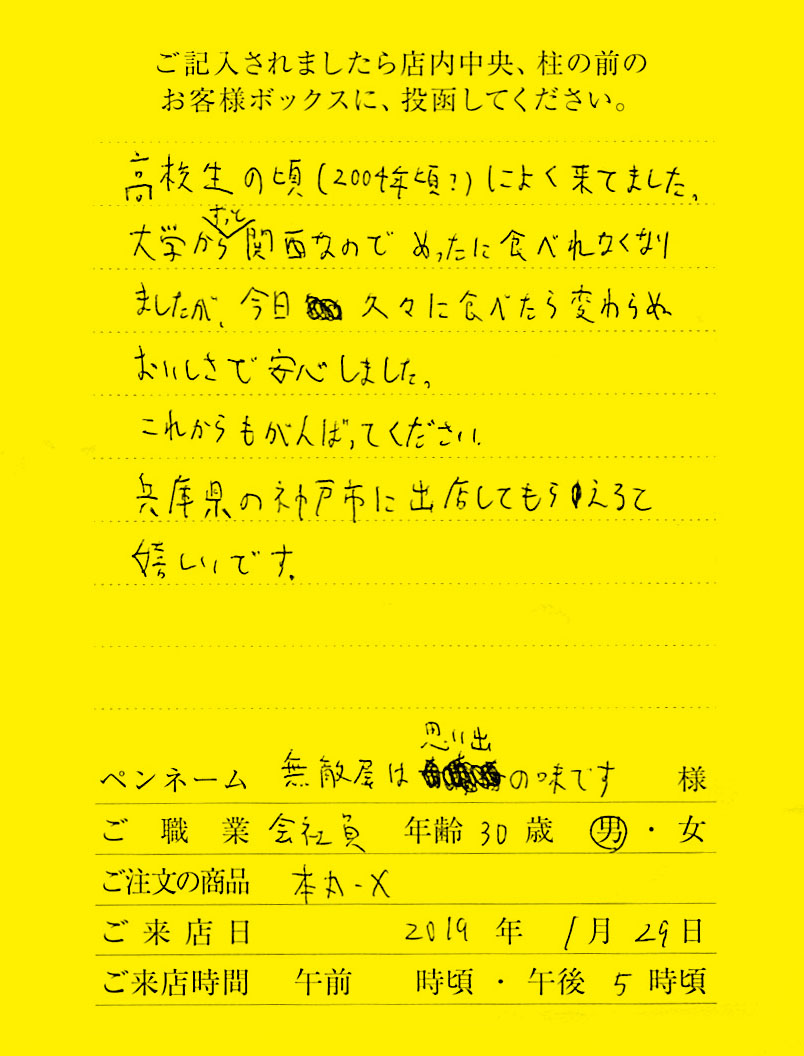 ご記入されましたら店内中央、柱の前の
お客様ボックスに、投函してください。
高校生の頃(2004年頃?)によく来てました。
大学からずっと関西なのでめったに食べれなくなり
ましたが、今日久々に食べたら変わらぬ
おいしさで安心しました。
これからもがんばってください。
兵庫県の神戸市に出店してもらえると
嬉しいです。
ペンネーム 無敵屋は思い出の味です 様
ご職業 会社員 年齢 30 歳 男・女
ご注文の商品 本丸-X
ご来店日 2019 年 1月 29日
ご来店時間 午前 時頃・午後 5 時頃